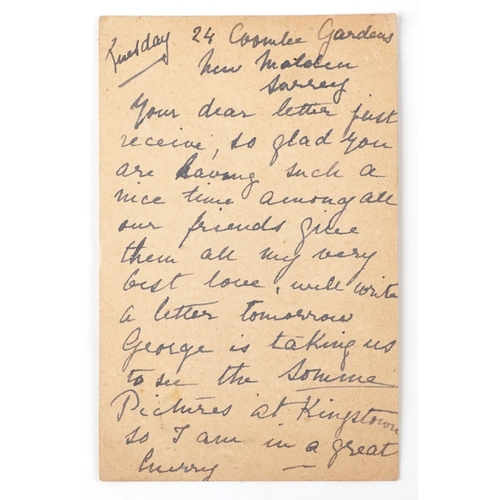 Tuesday 24 Coombe Gardens
New Malden
Surrey
Your dear letter just
receive, so glad you
are having such a
nice time among all
our friends give
them all my very
best love, will write
a letter tomorrow
George is taking us
to see the Somme
Pictures at Kingstown
so I am in a great
hurry